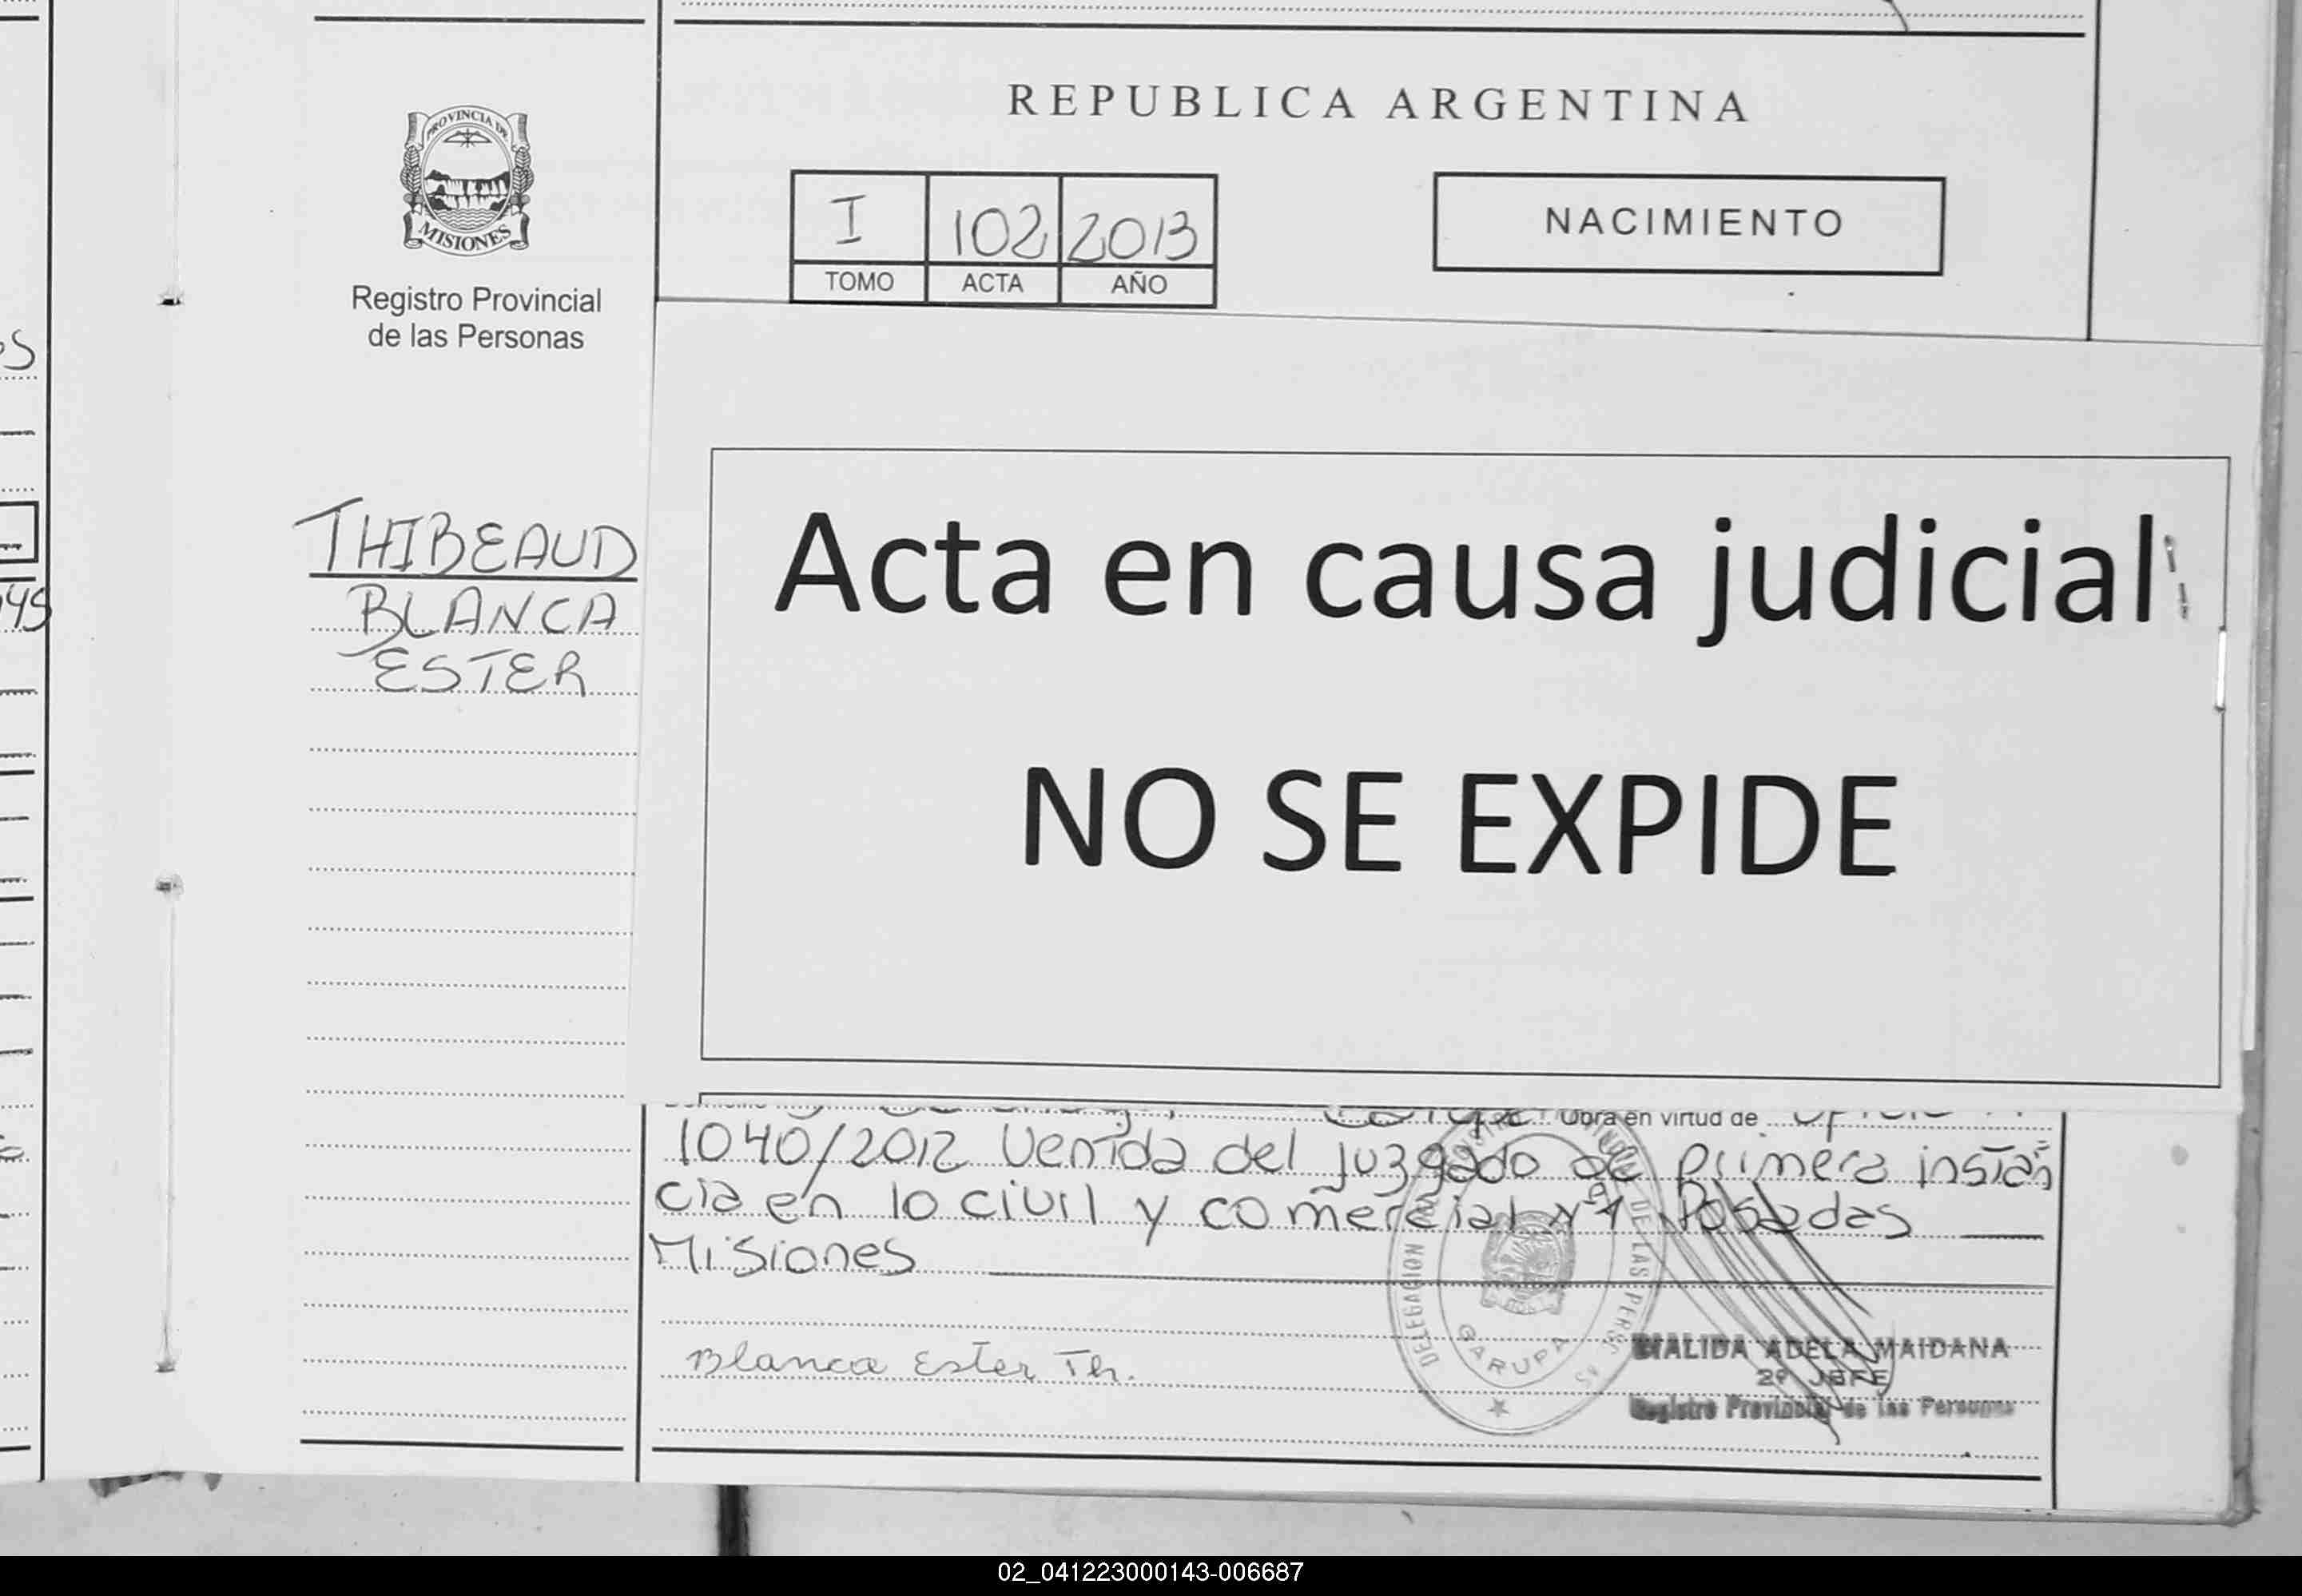 REPUBLICA ARGENTINA
PROVINCIA DE
MISIONES
Registro Provincial
de las Personas
I 102 2013
TOMO ACTA AÑO
NACIMIENTO
THIBEAUD
BLANCA
ESTER
Acta en causa judicial
NO SE EXPIDE
Obra en virtud de
1040/2012 Venida del juzgado de primera instan
cia en lo civil y comercial Nº1 Posadas
Misiones
Blanca Ester Th.
DELEGACION
DE LAS PERS
GARUPA
ADELA MAIDANA
2º JEFE
Registro Provincial de las Personas
02_041223000143-006687